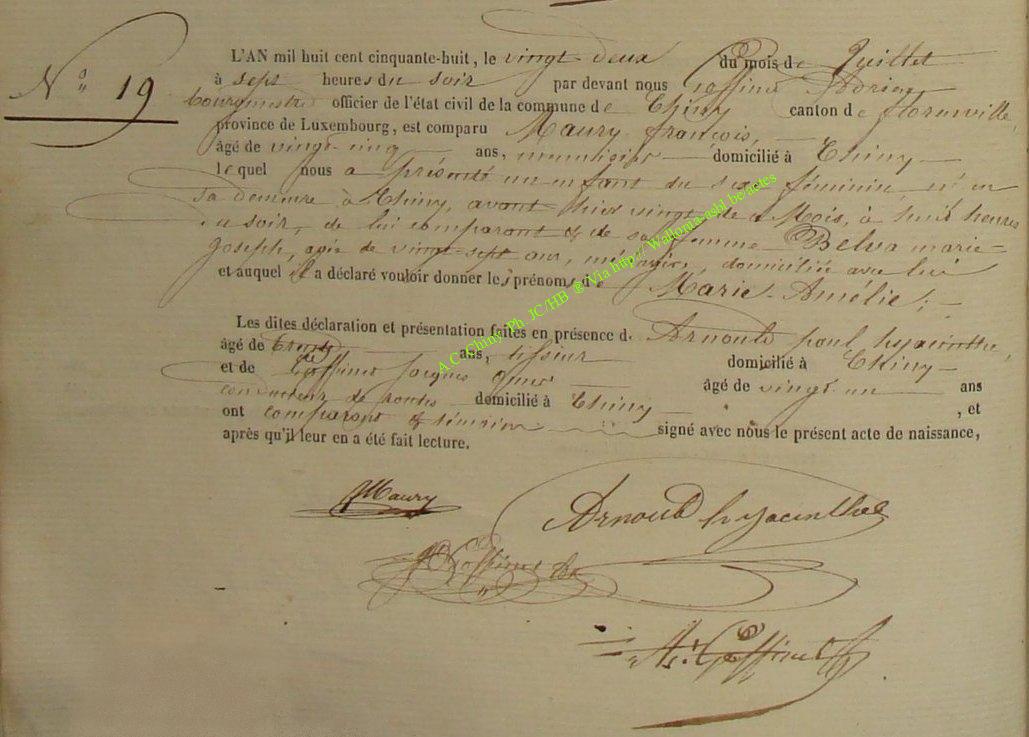 N° 19
L'AN mil huit cent cinquante-huit, le vingt deux du mois de Juillet
à sept heures du soir par devant nous Goffinet Adrien
bourgmestre officier de l'état civil de la commune de Chiny canton de florenville,
province de Luxembourg, est comparu Maury françois,
âgé de vingt-cinq ans, menuisier domicilié à Chiny
lequel nous a présenté un enfant du sexe féminin né en
sa demeure à Chiny, avant hier vingt de ce Mois, à huit heures
du soir, de lui comparant & de sa femme Belva marie-
joseph, agée de vingt-sept ans, ménagère, domiciliée avec lui
et auquel il a déclaré vouloir donner les prénoms de Marie-Amélie;
Les dites déclaration et présentation faites en présence de Arnould paul hyacinthe,
âgé de ans, tisseur domicilié à Chiny
et de Goffinet Jacques âgé de vingt un ans
conducteur de routes domicilié à Chiny , et
ont comparant & témoins signé avec nous le présent acte de naissance,
après qu'il leur en a été fait lecture.
Maury
Arnould hyacinthe
Goffinet
A. Goffinet
A.C. Chiny Ph JC/HB @ Via http// Walloma-asbl be/actes